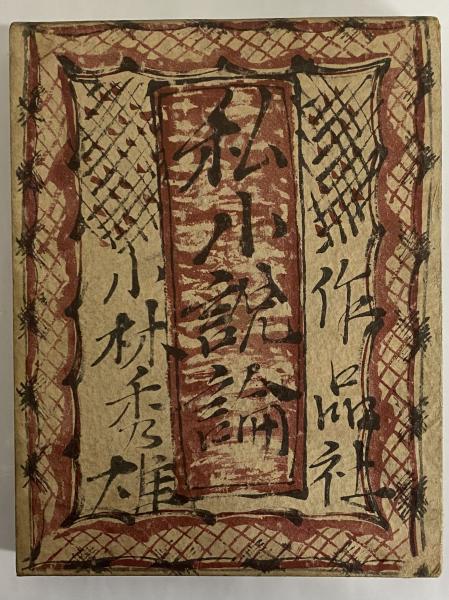 作品社
私小說論
小林秀雄